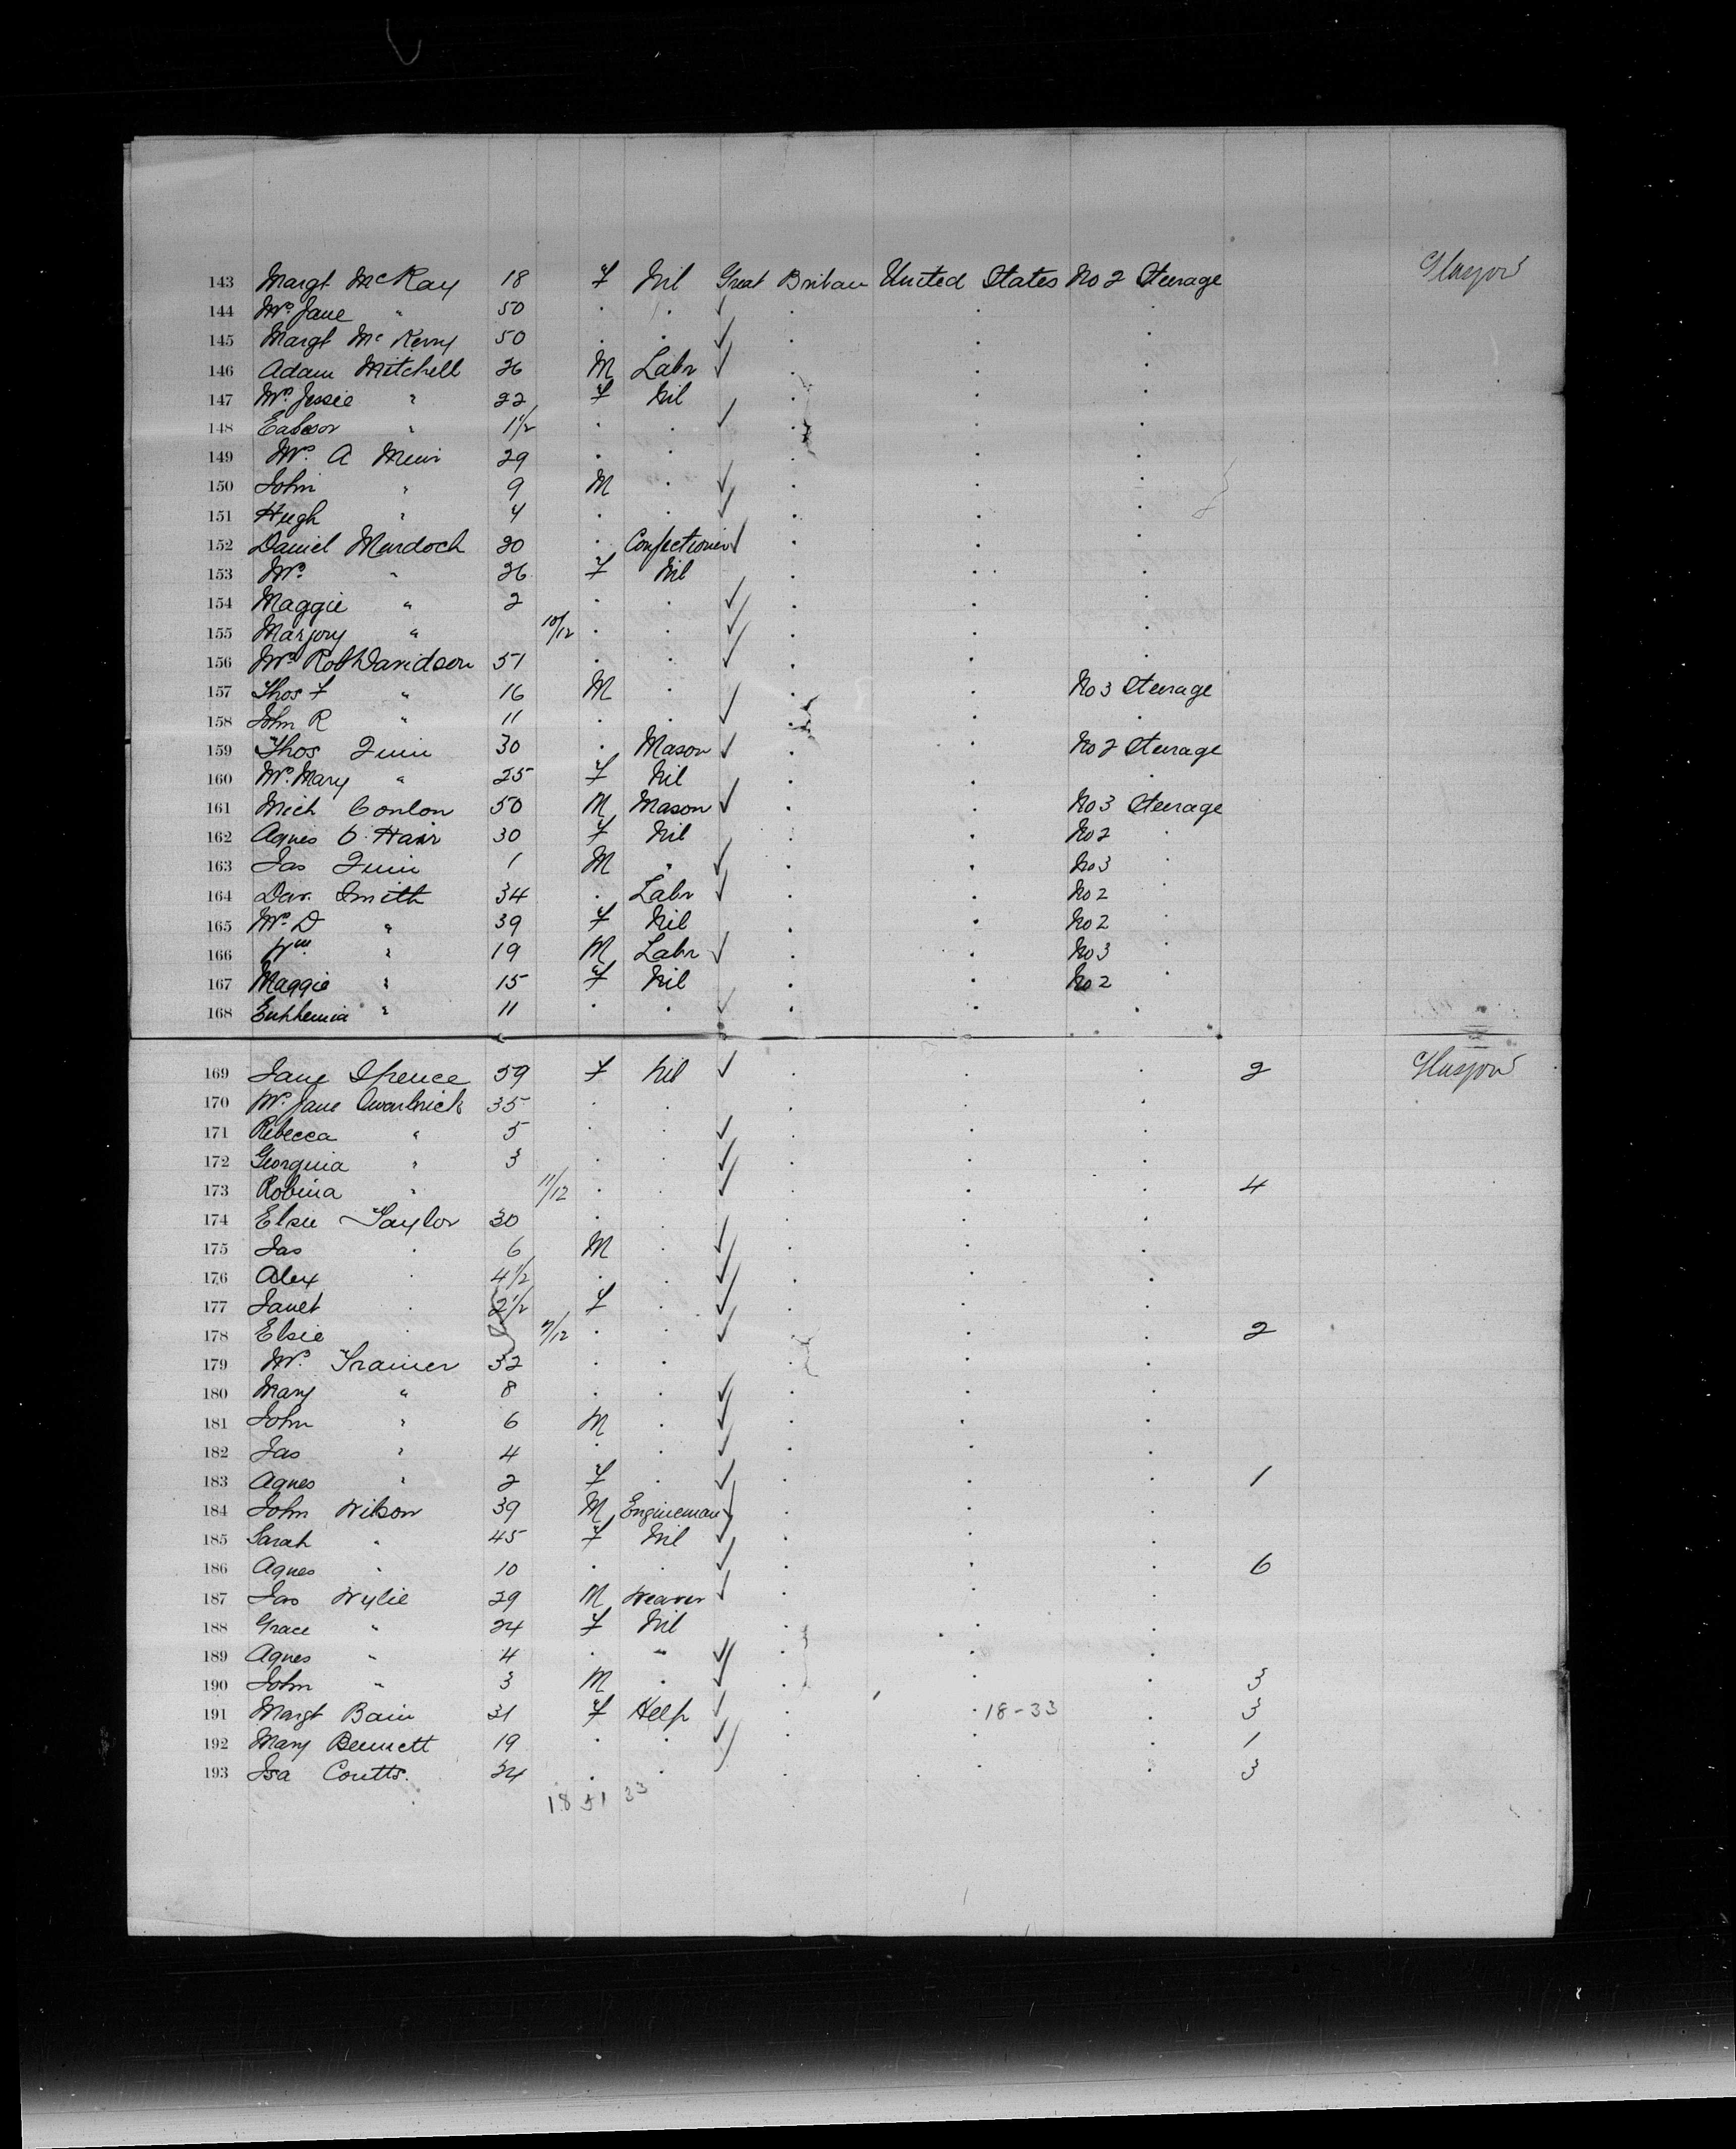 143 Margt McKay 18 F Nil Great Britain United States No 2 Steerage Glasgow
144 Mrs Jane " 50 . . . . .
145 Margt McKerry 50 . . . . .
146 Adam Mitchell 26 M Labr . . .
147 Mrs Jessie " 22 F Nil . . .
148 " 1 1/2 . . . . .
149 Mrs A Muir 29 . . . . .
150 John " 9 M . . . .
151 Hugh " 4 . . . . .
152 Daniel Murdoch 30 . Confectioner . . .
153 Mrs " 26 F Nil . . .
154 Maggie " 2 . . . . .
155 Marjory " 10/12 . . . . .
156 Mrs Robt Davidson 51 . . . . .
157 Thos F " 16 M . . . No 3 Steerage
158 John R " 11 . . . . .
159 Thos Quin 30 . Mason . . No 2 Steerage
160 Mrs Mary " 25 F Nil . . .
161 Mich Conlon 50 M Mason . . No 3 Steerage
162 Agnes O'Hair 30 F Nil . . No 2 "
163 Jas Quin 1 M " . . No 3 "
164 Dav. Smith 34 . Labr . . No 2 "
165 Mrs D " 39 F Nil . . No 2 "
166 Wm " 19 M Labr . . No 3 "
167 Maggie " 15 F Nil . . No 2 "
168 Euphemia " 11 . . . . .
169 Jane Spence 59 F Nil . . 2 Glasgow
170 Mrs Jane 35 . . . . .
171 Rebecca " 5 . . . . .
172 Georgina " 3 . . . . .
173 Robina " 11/12 . . . . . 4
174 Elsie Taylor 30 . . . . .
175 Jas . 6 M . . . .
176 Alex . 4 1/2 . . . . .
177 Janet . 2 1/2 F . . . .
178 Elsie . 7/12 . . . . . 2
179 Mrs Trainer 32 . . . . .
180 Mary " 8 . . . . .
181 John " 6 M . . . .
182 Jas " 4 . . . . .
183 Agnes " 2 F . . . . 1
184 John Wilson 39 M Engineman . . .
185 Sarah " 45 F Nil . . .
186 Agnes " 10 . . . . . 6
187 Jas Wylie 29 M Weaver . . .
188 Grace " 24 F Nil . . .
189 Agnes " 4 . " . . .
190 John " 3 M . . . . 3
191 Margt Bain 31 F Help . . 18-33 . 3
192 Mary Bennett 19 . . . . 1
193 Isa Coutts. 24 . . . . . 3
18 51 33